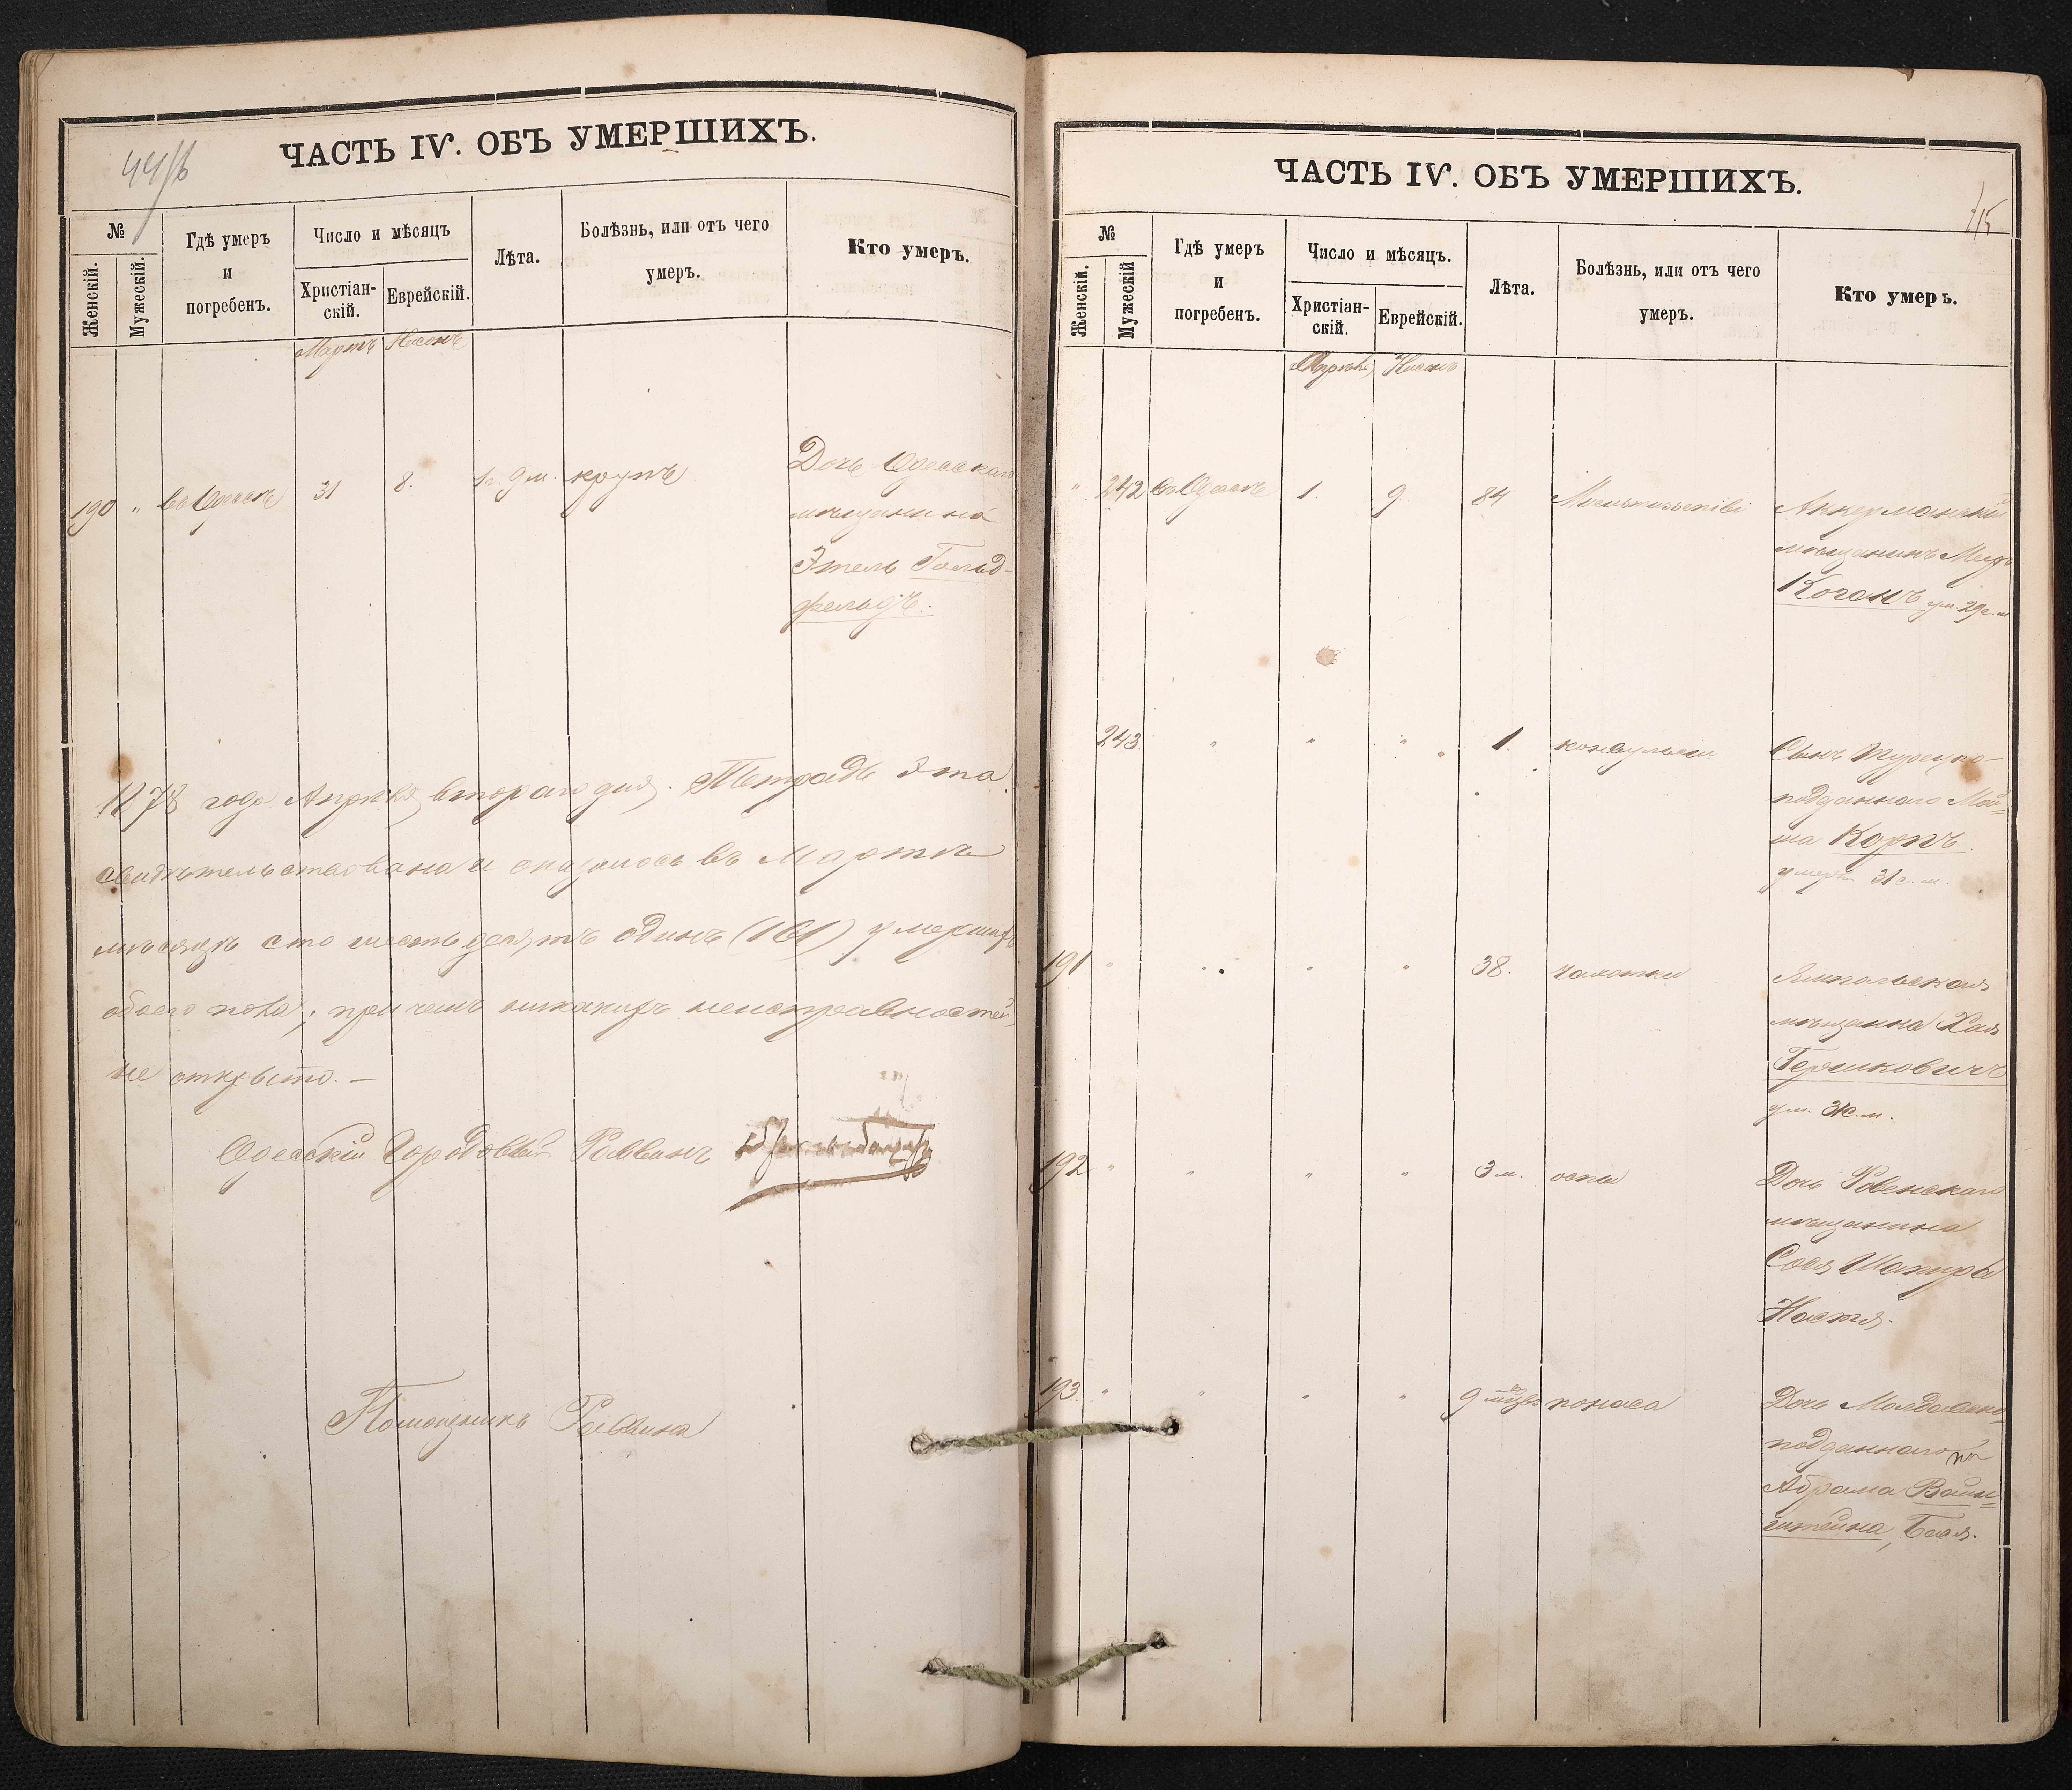 ЧАСТЬ IV. ОБЪ УМЕРШИХЪ.
№
Женскій.
Мужескій.
Гдѣ умеръ
и
погребенъ.
Число и мѣсяцъ
Христіан-
скій.
Еврейскій.
Лѣта.
Болѣзнь, или отъ чего
умеръ.
Кто умеръ.
Мартъ Нисонъ
190 " въ Одессѣ 31 8. 1г. 9 м. крупъ
Дочь Одесскаго
мѣщанина
Этель Гольд-
фельдъ.
1878 года Апрѣля втораго дня. Тетрадь эта
свидѣтельствована и оказалось въ Мартѣ
мѣсяцѣ сто шестьдесятъ одинъ (161) умершихъ
обоего пола, при чемъ никакихъ неисправностей
не открыто. —
Одесскій Городовый Раввинъ
Помощникъ Раввина
ЧАСТЬ IV. ОБЪ УМЕРШИХЪ.
№
Женскій.
Мужескій
Гдѣ умеръ
и
погребенъ.
Число и мѣсяцъ.
Христіан-
скій.
Еврейскій.
Лѣта.
Болѣзнь, или отъ чего
умеръ.
Кто умеръ.
Апрѣль Нисанъ
" 242 въ Одессѣ 1. 9 84
Аккерманскій
мѣщанинъ
Коганъ ум. 29 с. м
243 " " " " 1 конвульсіи
Сынъ Турецко-
подданнаго Мой-
ша Корпъ
умеръ 31 с. м.
191 " " " " 38. чахотки
Ямпольская
мѣщанка Хая
Гершковичъ
ум. 31 с. м.
192 " " " " 3 м. оспы
Дочь Ровенскаго
мѣщанина
Шапиры
Настя.
193. " " " " 9 поноса
Дочь Молдавско-
подданнаго
Абрама Вайн-
штейна, Бася.